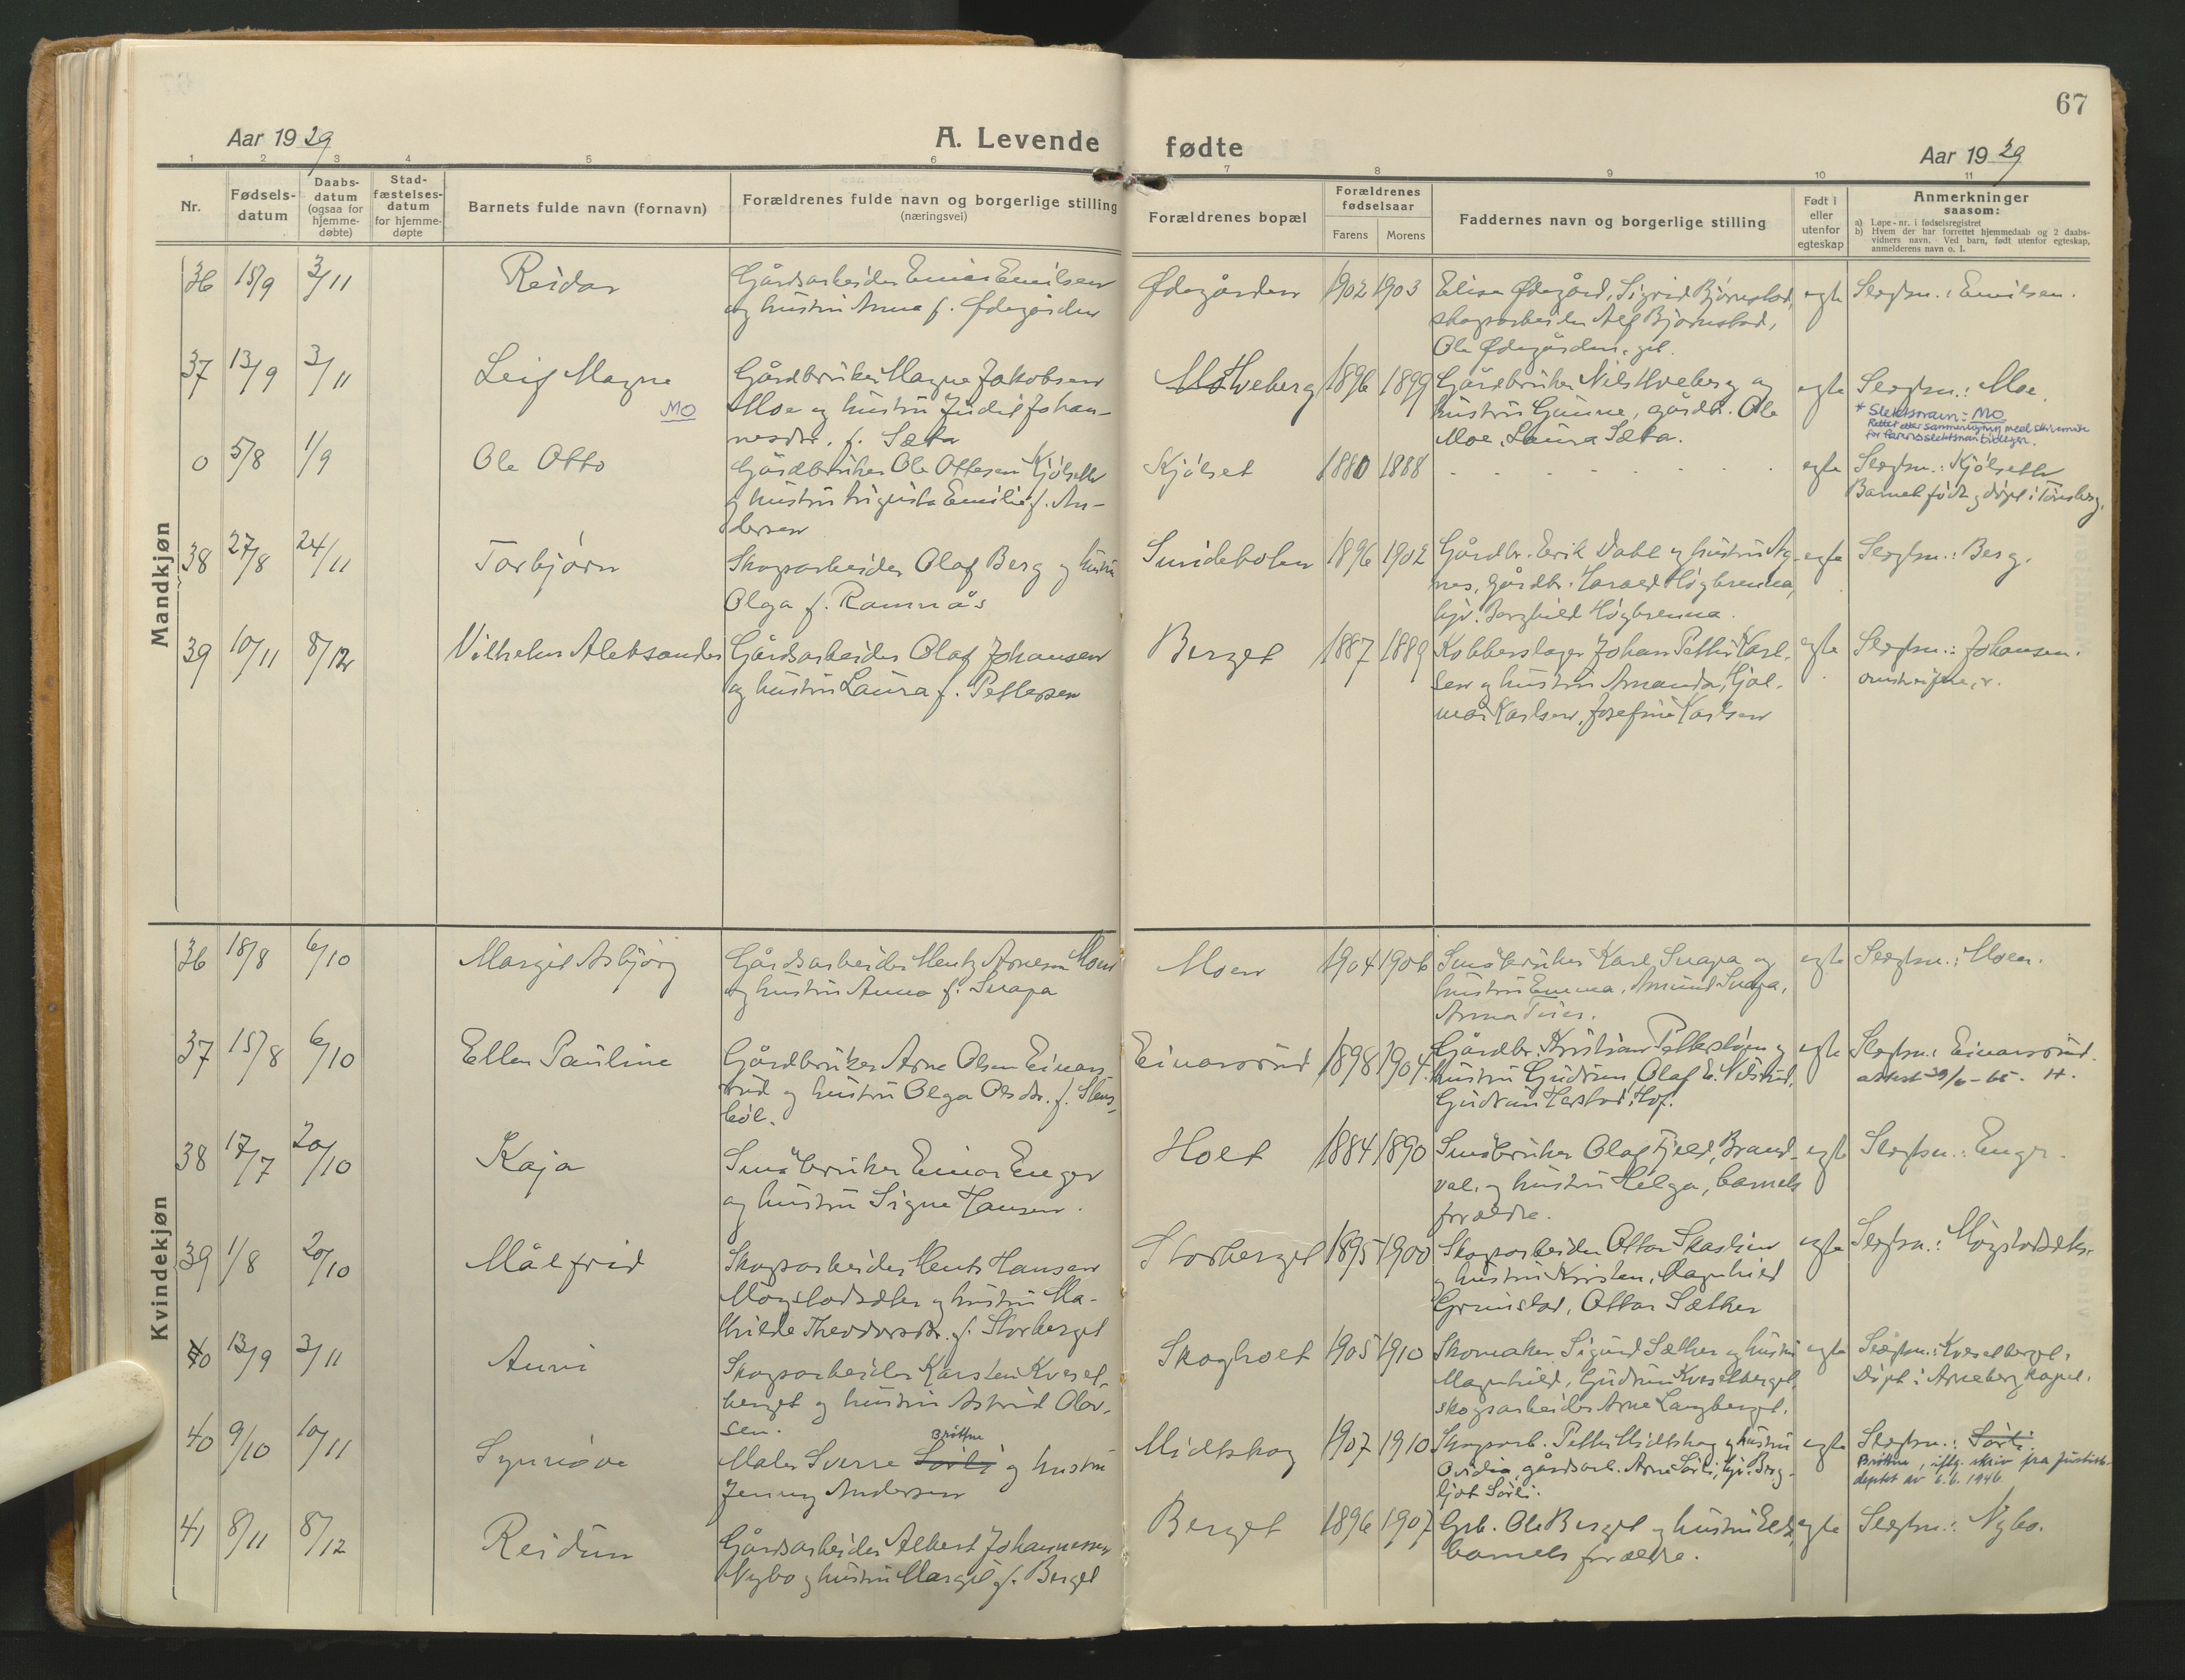 67
Aar 1929
A. Levende fødte
Aar 1929
1 2 3 4 5 6 7 8 9 10 11
Nr.
Fødsels-
datum
Daabs-
datum
(ogsaa for
hjemme-
døbte)
Stad-
fæstelses-
datum
for hjemme-
døpte
Barnets fulde navn (fornavn)
Forældrenes fulde navn og borgerlige stilling
(næringsvei)
Forældrenes bopæl
Forældrenes
fødselsaar
Farens Morens
Faddernes navn og borgerlige stilling
Født i
eller
utenfor
egteskap
Anmerkninger
saasom:
a) Løpe-nr. i fødselsregistret
b) Hvem der har forrettet hjemmedaab og 2 daabs-
vidners navn. Ved barn, født utenfor egteskap,
anmelderens navn o. l.
Mandkjøn
36 15/9 3/11 Reidar
Gårdsarbeider Einar Emilsen
og hustru Anna f. Ødegården
Ødegården 1902 1903
Elise Ødegård, Sigrid Bjørnstad,
skogsarbeider Alf Bjørnstad,
Ole Ødegården, gdl.
egte
Slegtsn.: Emilsen.
37 13/9 3/11 Leif Magne
MO
Gårdbruker Magne Jakobsen
Moe og hustru Judit Johan-
nesdr. f. Sæta
Hveberg 1896 1899
Gårdbruker Nils Hveberg og
hustru Gunne, gårdbr. Ole
Moe, Laura Sæta.
egte
Slegtsn.: Moe.
* Slektsnavn: MO
Rettet etter sammenligning med skrivemåte
for farens slektsnavn tidligere.
0 5/8 1/9 Ole Otto
Gårdbruker Ole Ottesen Kjølseth
og hustru Augusta Emilie f. An-
dersen
Kjølset 1880 1888
egte
Slegtsn.: Kjølseth
Barnet født og døpt i Tønsberg.
38 27/8 24/11 Torbjørn
Skogsarbeider Olaf Berg og hustru
Olga f. Ramnås
Sundeholen 1896 1902
Gårdbr. Erik Dahl og hustru Ag-
nes, gårdbr. Harald Høgbrenna,
hjv. Borghild Høgbrenna.
egte
Slegtsn.: Berg.
39 10/11 8/12 Vilhelm Aleksander
Gårdsarbeider Olaf Johansen
og hustru Laura f. Pettersen
Berget 1887 1889
Kobberslager Johan Petter Karl-
sen og hustru Amanda, Hjal-
mar Karlsen, Josefine Karlsen
egte
Slegtsn.: Johansen.
Kvindekjøn
36 18/8 6/10 Margit Asbjørg
Gårdsarbeider Mentz Arnesen Moen
og hustru Anna f. Snapa
Moen 1904 1906
Småbruker Karl Snapa og
hustru Emma, Amund Snapa,
egte
Slegtsn.: Moen.
37 15/8 6/10 Ellen Pauline
Gårdbruker Arne Olsen Einars-
rud og hustru Olga Olsdr. f. Stens-
bøl.
Einarsrud 1898 1904
Gårdbr. Kristian Petterstuen og
hustru Gudrun, Olaf E. Nilsrud,
Gudrun Herstad, Hof.
egte
Slegtsn.: Einarsrud.
attest 29/6-65. H.
38 17/7 20/10 Kaja
Småbruker Einar Enger
og hustru Signe Hansen.
Holt 1884 1890
Småbruker Olaf Fjeld, Brand-
val, og hustru Helga, barnets
forældre.
egte
Slegtsn.: Enger.
39 1/8 20/10 Målfrid
Skogsarbeider Mentz Hansen
Mogstadsæter og hustru Ma-
thilde Theodorsdr. f. Storberget
Storberget 1895 1900
Skogsarbeider Ottar Skaslien
og hustru Kristen, Ragnhild
Grimstad, Ottar Sæther
egte
Slegtsn.: Mogstadsæter.
40 13/9 3/11 Anni
Skogsarbeider Karsten Kvesel-
berget og hustru Astrid Olav-
sen.
Skogholt 1905 1910
Skomaker Sigurd Sæther og hustru
Magnhild, Gudrun Kveselberget,
skogsarbeider Arne Langberget.
egte
Slegtsn.: Kveselberget.
Døpt i Arneberg kapel.
40 9/10 10/11 Synnøve
Brottne
Maler Sverre Sørli og hustru
Jenny Andersen
Midtskog 1907 1910
Skogsarb. Petter Midtskog og hustru
Ovidia, gårdsarb. Arne Sørli, hjv. Berg-
ljot Sørli.
egte
Slegtsn.: Sørli
Brottne, iflg. skriv fra Justis-
deptet av 6.6.1946.
41 8/11 8/12 Reidun
Gårdsarbeider Albert Johannesen
Nybo og hustru Margit f. Berget
Berget 1896 1907
Grb. Ole Berget og hustru Elise,
barnets forældre.
egte
Slegtsn.: Nybo.